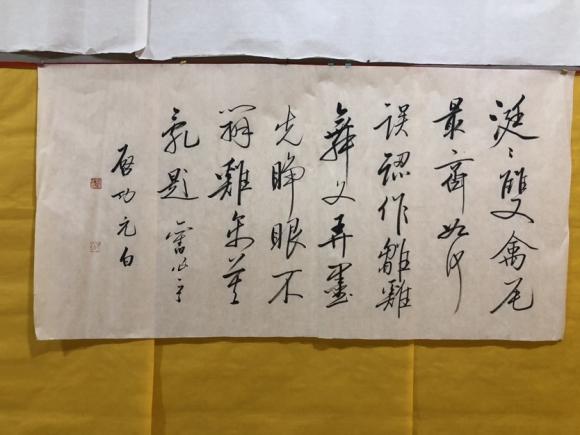 涎〻雙禽尾
最齊如何
誤認作雛雞
舞文弄墨
先睜眼不
辨雞莫
亂題
啟功元白